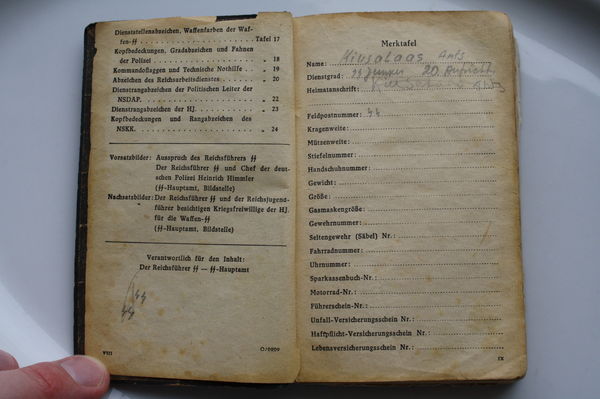 Dienststellenabzeichen, Waffenfarben der Waf-
fen-ᛋᛋ . . . . . . . . . . . . . . . . Tafel 17
Kopfbedeckungen, Gradabzeichen und Fahnen
der Polizei . . . . . . . . . . . . . . . . „ 18
Kommandoflaggen und Technische Nothilfe . . „ 19
Abzeichen des Reichsarbeitsdienstes . . . . . „ 20
Dienstrangabzeichen der Politischen Leiter der
NSDAP. . . . . . . . . . . . . . . . . „ 22
Dienstrangabzeichen der HJ. . . . . . . . . „ 23
Kopfbedeckungen und Rangabzeichen des
NSKK. . . . . . . . . . . . . . . . . . „ 24
Vorsatzbilder: Ausspruch des Reichsführers ᛋᛋ
Der Reichsführer ᛋᛋ und Chef der deut-
schen Polizei Heinrich Himmler
(ᛋᛋ-Hauptamt, Bildstelle)
Nachsatzbilder: Der Reichsführer ᛋᛋ und der Reichsjugend-
führer besichtigen Kriegsfreiwillige der HJ.
für die Waffen-ᛋᛋ
(ᛋᛋ-Hauptamt, Bildstelle)
Verantwortlich für den Inhalt:
Der Reichsführer ᛋᛋ — ᛋᛋ-Hauptamt
ᛋᛋ
ᛋᛋ
VIII
Merktafel
Name: Ants
Dienstgrad: ᛋᛋ 20
Heimatanschrift:
Feldpostnummer: ᛋᛋ
Kragenweite:
Mützenweite:
Stiefelnummer:
Handschuhnummer:
Gewicht:
Größe:
Gasmaskengröße:
Gewehrnummer:
Seitengewehr (Säbel) Nr.:
Fahrradnummer:
Uhrnummer:
Sparkassenbuch-Nr.:
Motorrad-Nr.:
Führerschein-Nr.:
Unfall-Versicherungsschein Nr.:
Haftpflicht-Versicherungsschein Nr.:
Lebensversicherungsschein Nr.:
IX